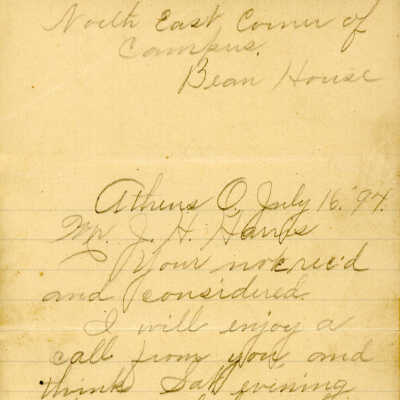 North East Corner of
Campus.
Bean House
Athens O, July 16. '97.
Mr. J. H. Harris
Your note rec'd
and considered.
I will enjoy a
call from you and
think Sat. evening